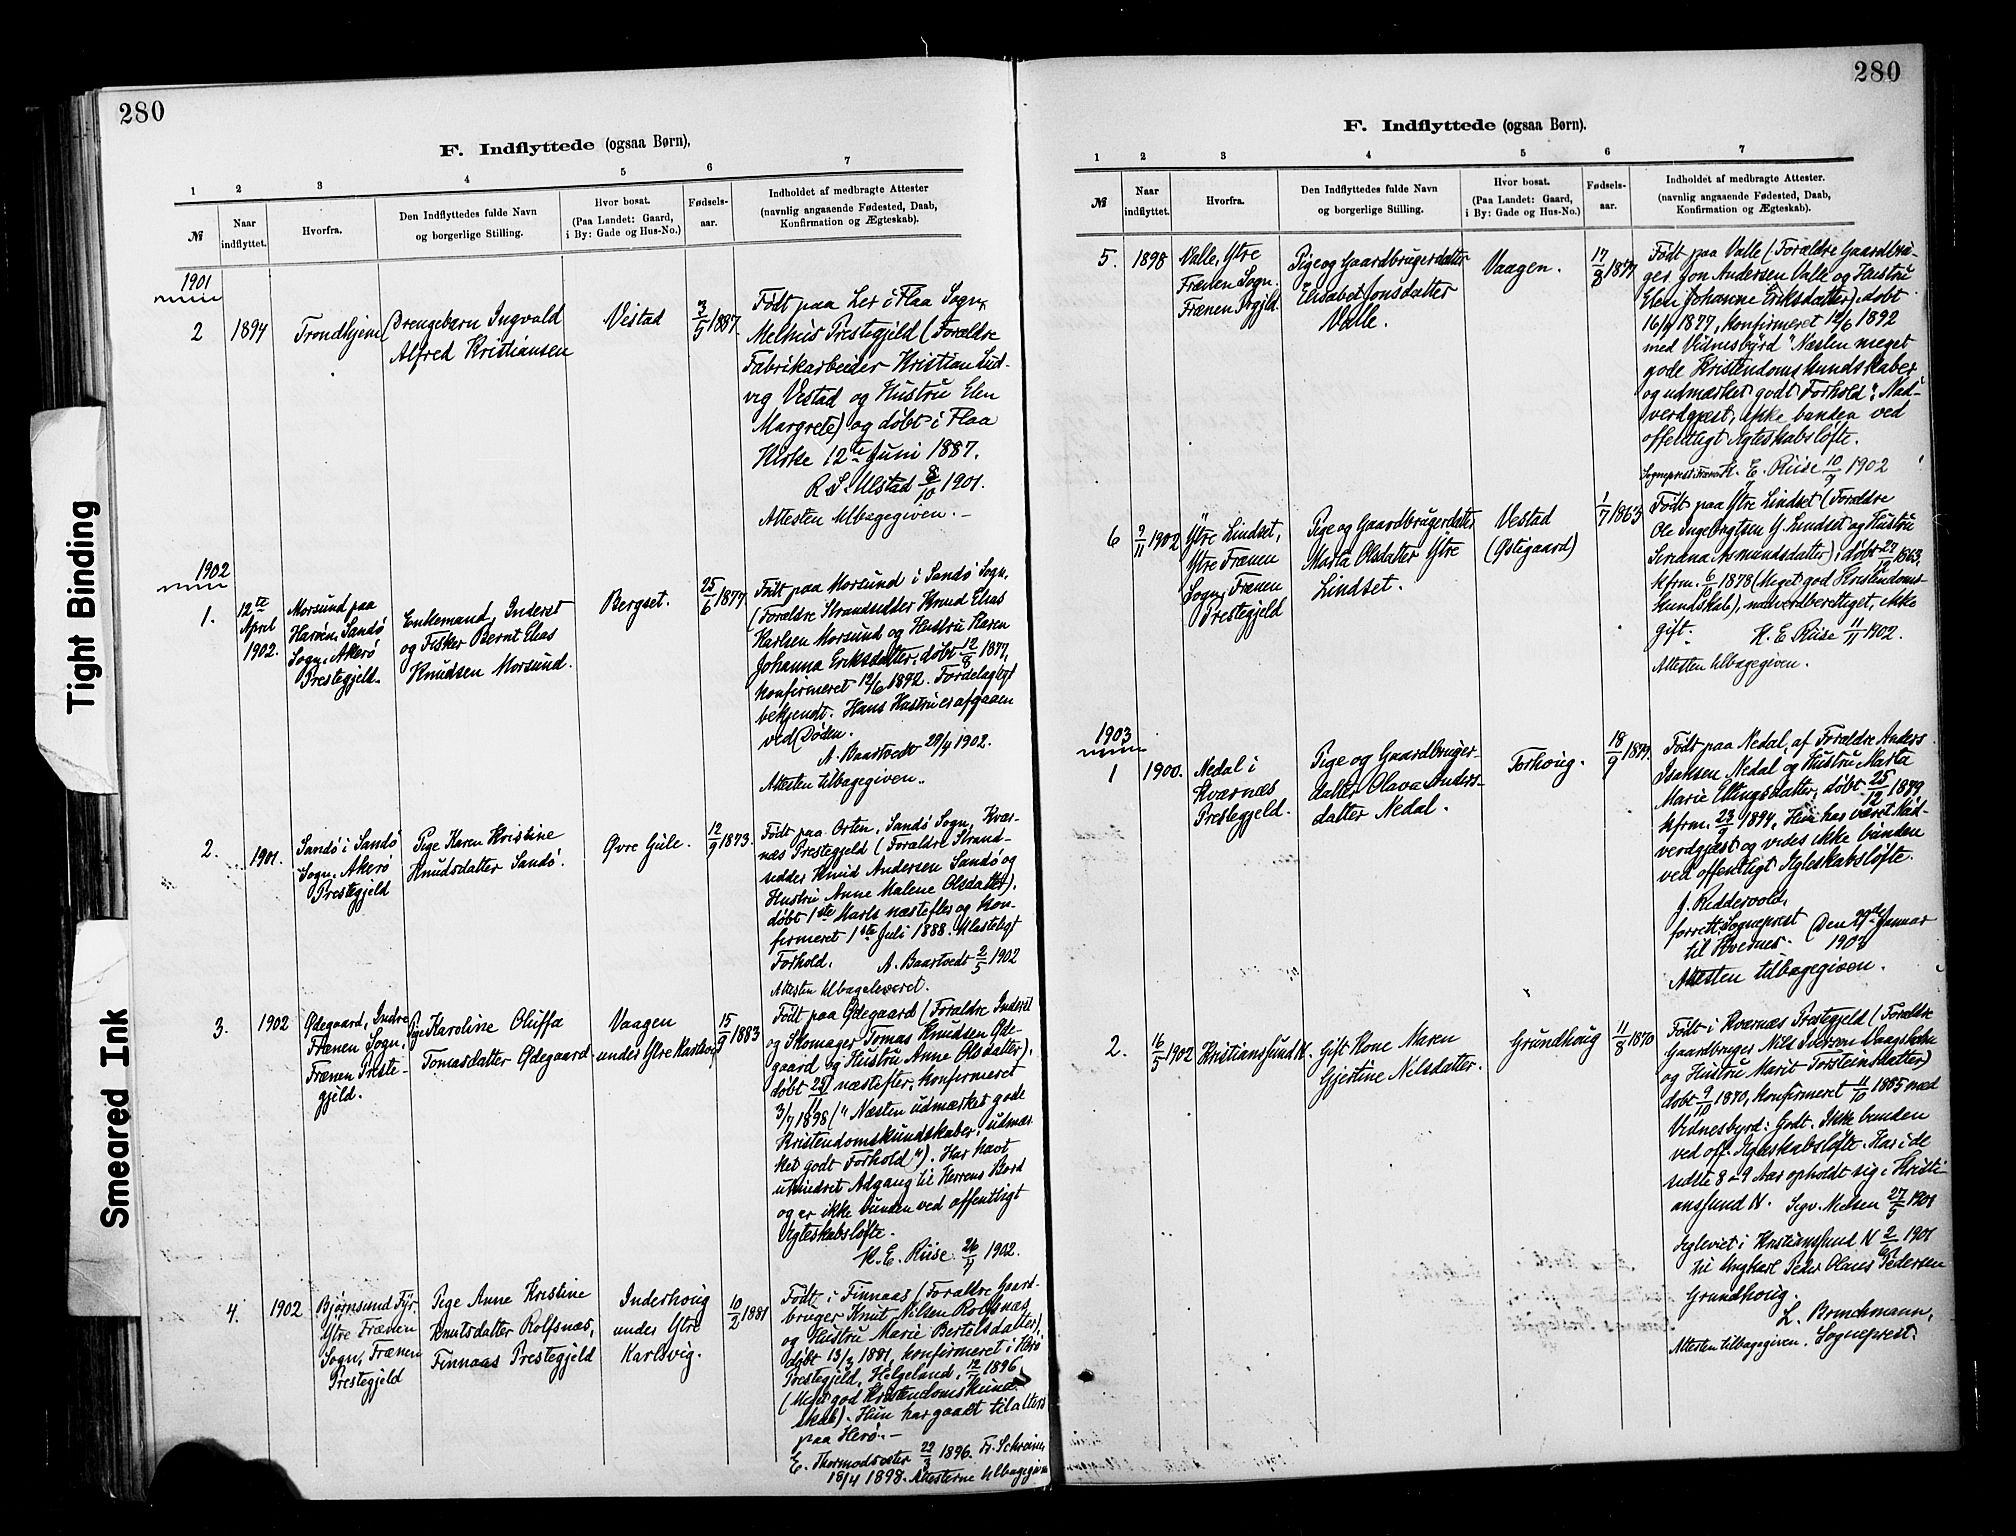 280
F. Indflyttede (ogsaa Børn).
1 2 3 4 5 6 7
№
Naar indflyttet.
Hvorfra.
Den Indflyttedes fulde Navn og borgerlige Stilling.
Hvor bosat. (Paa Landet: Gaard, i By: Gade og Hus-No.)
Fødsels-aar.
Indholdet af medbragte Attester (navnlig angaaende Fødested, Daab, Konfirmation og Ægteskab).
1901
2
1894
Trondhjem
Drengebarn Ingvald
Alfred Kristiansen
Vestad
3/5 1887
Født paa Ler i Flaa Sogn,
Melhus Prestegjeld (Forældre
Fabrikarbeider Kristian Lud-
vig Vestad og Hustru Elen
Margrete) og døbt i Flaa
Kirke 12te Juni 1887.
R. S. Ulstad 8/10 1901.
Attesten tilbagegiven.
1902
1.
12te
April
1902.
Morsund paa
Harøen, Sandø
Sogn, Akerø
Prestegjeld.
Enkemand, Inderst
og Fisker Bernt Elias
Knudsen Morsund.
Bergset.
25/6 1877
Født paa Morsund i Sandø Sogn,
(Forældre Strandsidder Knud Elias
Karlsen Morsund og Hustru Karen
Johanna Eriksdatter, døbt 12/8 1877,
konfirmeret 12/6 1892. Fordelagtigt
bekjendt. Hans Hustru er afgaaen
ved Døden.
A. Baartvedt 29/4 1902.
Attesten tilbagegiven.
2.
1901.
Sandø i Sandø
Sogn, Akerø
Prestegjeld
Pige Karen Kristine
Knudsdatter Sandø.
Øvre Gule.
12/9 1873.
Født paa Orten, Sandø Sogn, Kvær-
næs Prestegjeld (Forældre Strand-
sidder Knud Andersen Sandø og
Hustru Anne Malene Olsdatter),
døbt 1ste Marts næstefter og kon-
firmeret 1ste Juli 1888. Ulasteligt
Forhold.
A. Baartvedt 2/5 1902
Attesten tilbageleveret.
3.
1902
Ødegaard, Indre
Frænen Sogn,
Frænen Preste-
gjeld.
Pige Karoline Oluffa
Tomasdatter Ødegaard
Vaagen
under Ytre Karlsvig
15/9 1883
Født paa Ødegaard (Forældre Inderst
og Skomager Tomas Knudsen Øde-
gaard og Hustru Anne Olsdatter),
døbt 25/11 næstefter, konfirmeret
3/7 1898 ("Næsten udmærket gode
Kristendomskundskaber, udmær-
ket godt Forhold"). Har havt
uhindret Adgang til Herrens Bord
og er ikke bunden ved offentligt
Ægteskabsløfte.
K. E. Riise 26/4 1902.
4.
1902
Bjørnsund Fyr,
Ytre Frænen
Sogn, Frænen
Prestegjeld
Pige Anne Kristine
Knutsdatter Rolfsnæs,
Finnaas Prestegjeld
Inderhoug
under Ytre
Karlsvig.
10/2 1881
Født i Finnaas (Forældre Gaard-
bruger Knut Nilsen Rolfsnæs
og Hustru Marie Bertelsdatter),
døbt 13/3 1881, konfirmeret i Herø
Prestegjeld, Helgeland, 12/1896
(Meget god Kristendomskund-
skab). Hun har gaaet til alters
paa Herø.
E. Thormodsæter 22/3 1896. Fr. Schreiner
18/4 1898. Attesterne tilbagegivne
280
F. Indflyttede (ogsaa Børn).
1 2 3 4 5 6 7
№
Naar indflyttet.
Hvorfra.
Den Indflyttedes fulde Navn og borgerlige Stilling.
Hvor bosat. (Paa Landet: Gaard, i By: Gade og Hus-No.)
Fødsels-aar.
Indholdet af medbragte Attester. (navnlig angaaende Fødested, Daab, Konfirmation og Ægteskab).
5.
1898
Valle, Ytre
Frænen Sogn.
Frænen Prgjld.
Pige og Gaardbrugerdatter
Elisabet Jonsdatter
Valle.
Vaagen.
17/3 1877
Født paa Valle (Forældre Gaardbru-
ger Jon Andersen Valle og Hustru
Elen Johanne Eriksdatter), døbt
16/4 1877, konfirmeret 12/6 1892
med Vidnesbyrd "Næsten meget
gode Kristendomskundskaber
og udmærket godt Forhold". Nad-
verdgjest, ikke bunden ved
offentligt Ægteskabsløfte.
K. E. Riise 10/2 1902
6
2/11 1902
Ytre Lindset,
Ytre Frænen
Sogn, Frænen
Prestegjeld
Pige og Gaardbrugerdatter
Marta Olsdatter Ytre
Lindset.
Vestad
(Østigaard)
1/7 1863
Født paa Ytre Lindset (Forældre
Ole Ingebrigtsen Y. Lindset og Hustru
Seriana Amundsdatter), døbt 27/12 1863,
kfrm. 6/ 1878 (Meget god Kristendoms
kundskab), nadverdberettiget, ikke
gift.
K. E. Riise 11/11 1902.
Attesten tilbagegiven.
1903
1
1900.
Nedal i
Kværnæs
Prestegjeld.
Pige og Gaardbruger-
datter Olava Anders-
datter Nedal.
Torhoug.
18/9 1879
Født paa Nedal, af Forældre Anders
Isaksen Nedal og Hustru Marta
Marie Ellingsdatter, døbt 25/12 1879,
kfrm. 23/9 1894. Hun har været Nad-
verdgjæst og vides ikke bunden
ved offentligt Ægteskabsløfte.
J. Riddervold,
forrett. Sogneprest
til Kvernes.
Den 29de Januar
1903
Attesten tilbagegiven.
2.
16/5 1902
Kristianssund N.
Gift Kone Maren
Gjertine Nilsdatter.
Grundhoug
11/8 1870
Født i Kværnæs Prestegjeld (Forældre
Gaardbruger Nils Iversen
og Hustru Marit Torsteinsdatter)
døbt 9/10 1870, konfirmeret 11/10 1885 med
Vidnesbyrd: Godt. Ikke bunden
ved off. Ægteskabsløfte. Har i de
sidste 8 a 9 Aar opholdt sig i Kristi-
anssund N. Sigv. Nielsen 27/5 1901
Ægteviet i Kristianssund N 2/6 1901
til Ungkarl Peder Olaus Pedersen
Grundhoug.
L. Brinchmann,
Sogneprest.
Attesten tilbagegiven.
Tight Binding
Smeared Ink